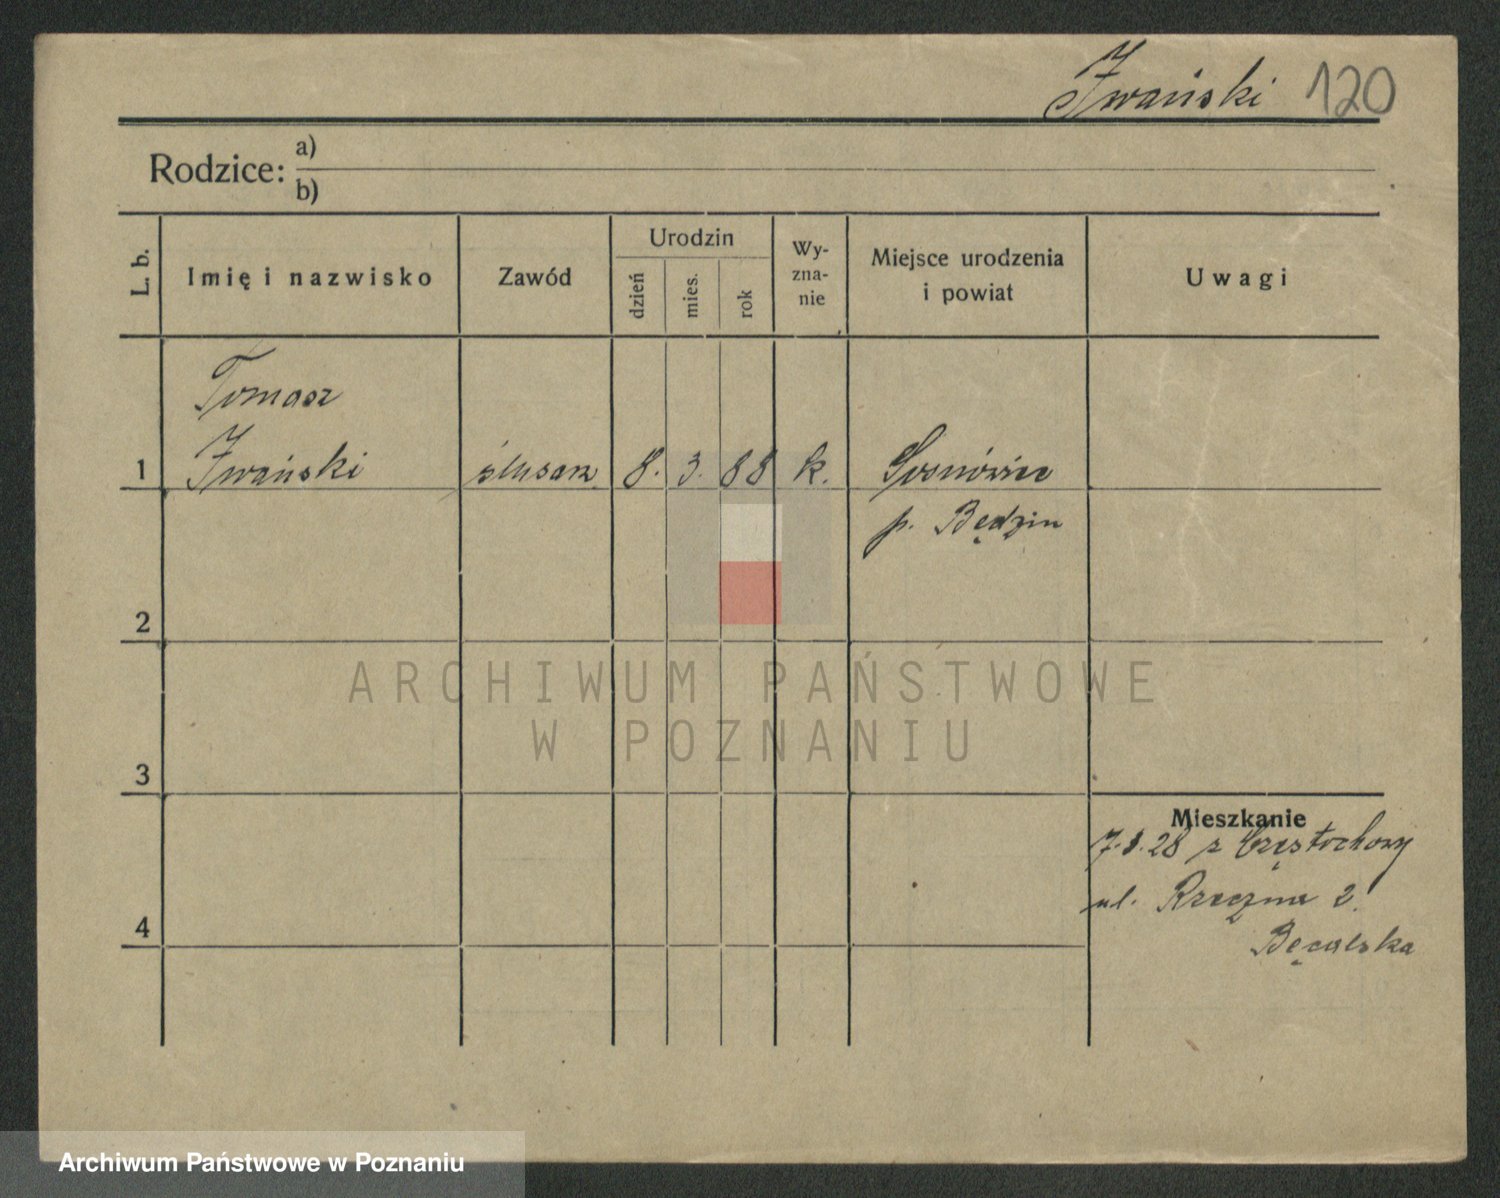 Iwański 120
Rodzice: a)
b)
L. b.
Imię i nazwisko
Zawód
Urodzin
dzień
mies.
rok
Wy-
zna-
nie
Miejsce urodzenia
i powiat
Uwagi
Tomasz
1 Iwański ślusarz 8. 3. 88 k. Sosnowice
p. Będzin
2
ARCHIWUM PAŃSTWOWE
W POZNANIU
3
Mieszkanie
28 z Częstochowy
ul. Rzeczna 2.
4
Archiwum Państwowe w Poznaniu